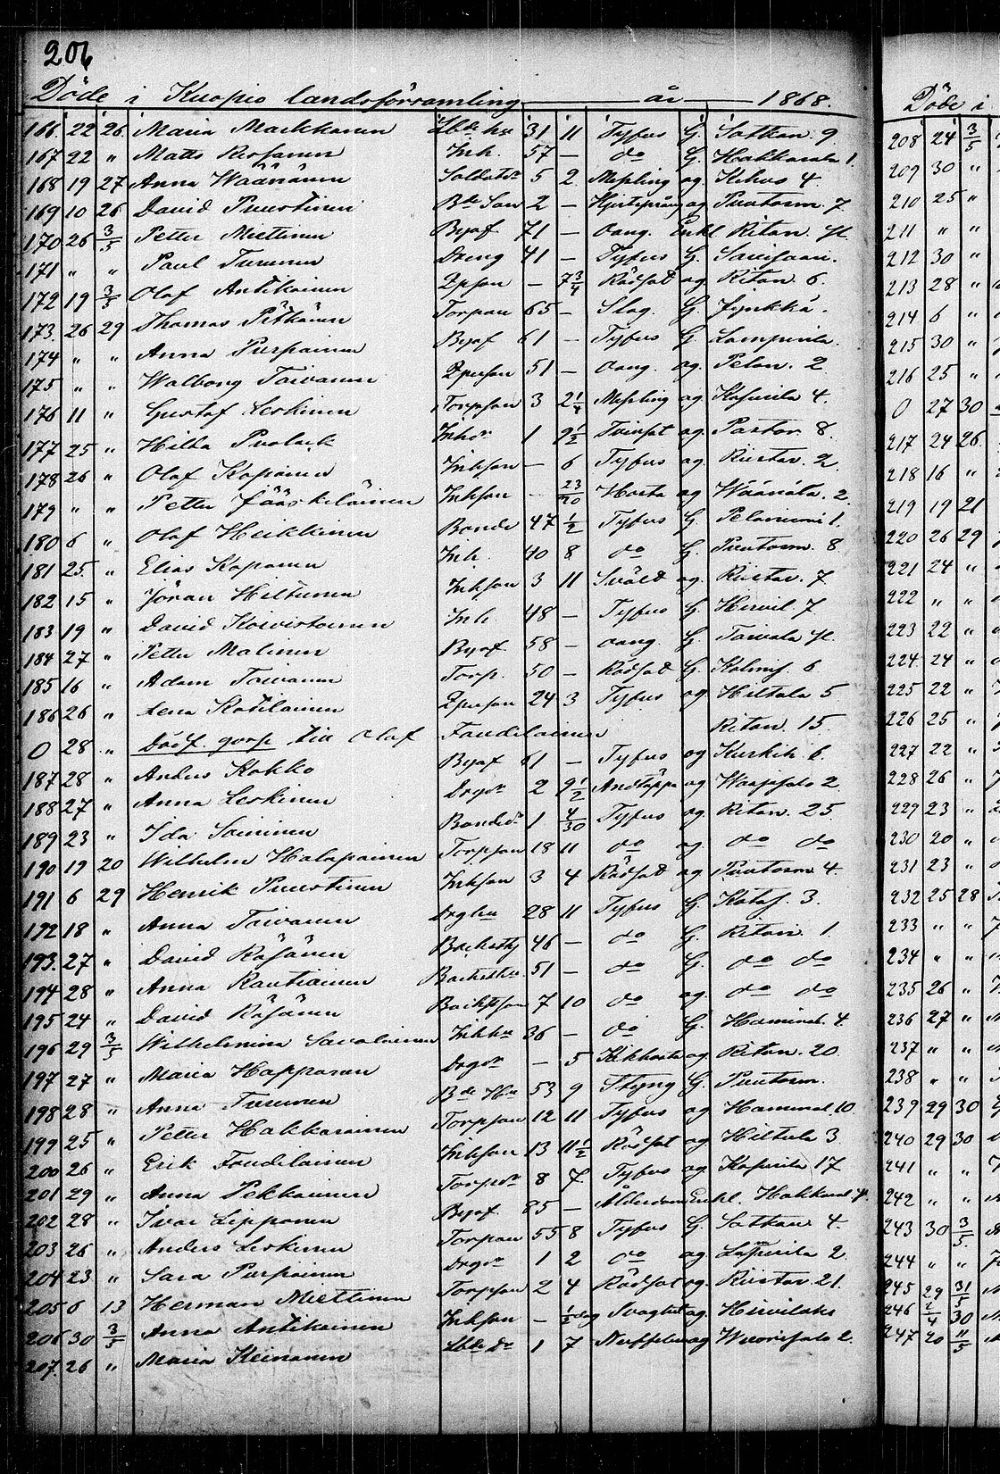 206
Döde i Kuopio landsförsamling år 1868.
166. 22 26. Maria Markkanen Sbde hu 31 11 Tyfus G. Sotkan. 9
167 22 " Matts Inh. 57 — do G. Hakkarala 1.
168 19 27 Anna Wäänänen Soldatdr 5 2 Messling og. Kehvo 4.
169 10 26 David Puustinen Bde Son 2 — og Puutosm. 7
170 26 3/5 Petter Miettinen Byaf 71 — oang. Enkl Riton.
171 " " Paul Turunen Dreng 41 — Tyfus G. Savisaari.
172 19 3/5 Olof Antikainen — 7 3/4 Rödsot og. Riton. 6.
173. 26 29 Thomas Pitkänen Torpare 65 — Slag. G. Jynkkä.
174 " " Anna Purpainen Byaf 61 — Tyfus G Lampinla.
175 " " Walborg Toivanen 51 — oang. og. Peton. 2
176 11 " Gustaf Leskinen Torpson 3 2 1/4 Messling og Kasurila 4.
177 25 " Hilda Inhdr 1 9 1/2 Tvinsot og Pastor 8.
178 26 " Olof Koponen Inhson — 6 Tyfus og Riistav. 2
179 " " Petter Jääskeläinen Inhson — 23/30 Hosta og Wäänälä. 2
180 6 " Olof Heikkinen Bonde 47 1/2 Tyfus G. Pelonniemi 1.
181 25. " Elias Koponen Inh. 40 8 do G. Puutosm. 8
182 15 " Jöran Hiltunen Inhson 3 11 Sväld og. Riistav. 7
183 19 " David Koivistoinen Inh. 48 — Tyfus G Hirvil 7
184 27 " Petter Malinen Byaf 58 — oang. G. Toivala
185 16 " Adam Toivanen Torp. 50 — Rödsot G. Kolmis. 6
186 26 " Lena Kotilainen 24 3 Tyfus og Hiltula 5
0 28 " Dödf. gosse till Olof Taudilainen Riton. 15
187 28 " Anders Kokko Byaf 61 — Tyfus og Kurkih. 6.
188 27 " Anna Leskinen Drgdr 2 9 1/2 Andtäppa og 2
189 23 " Ida Soininen Bondedr 1 4/30 Tyfus og Riton. 25
190 19 20 Wilhelm Holopainen Torpson 18 11 do og do do
191 6 29 Henrik Puustinen Inhson 3 4 Rödsot og Puutosm 4.
192 18 " Anna Toivanen Drghu 28 11 Tyfus G. Kotas. 3.
193. 27 " David Räsänen Backsty 46 — do G. Riton. 1.
194 28 " Anna Rautiainen Backsthu 51 — do G. do do
195 24 " David Räsänen Backstson 7 10 do og do do
196 29 3/5 Wilhelmina Savolainen Inhhu 36 — do G. Haminal. 4.
197 27 " Maria Happonen Drgdr — 5 Kikhosta og Riton. 20
198 28 " Anna Turunen Bde Hu 53 9 Styng G. Puutosm.
199 25 " Petter Hakkarainen Torpson 12 11 Tyfus og Haminal. 10
200 26 " Erik Taudilainen Inhson 13 11 1/2 Rödsot og Hiltula 3
201 29 " Anna Pekkarinen Torpdr 8 7 Tyfus og Kasurila 17
202 28 " Ivar Lipponen Byaf. 85 — Ålderdom Enkl. Hakkaral
203 26 " Anders Leskinen Torpare 55 8 Tyfus G. Sotkan 4.
204 23 " Sara Purpainen Drgdr 1 2 do og Lapinla 2
205 6 13 Herman Miettinen Torpson 2 4 Rödsot og. Riistav. 21.
206 30 3/5 Anna Antikainen Inhson — 1/2 dg Svaghet og. Hirvilaks
207. 26 " Maria Keinonen Sbde dr 1 7 og Wuorisalo 2.
Döde i
208 24 3/5
209 30 "
210 25 "
211 " "
212 30 "
213 28 "
214 6 "
215 30 "
216 25 "
0 27 30
217 24 26
218 16 "
219 19 21
220 26 29
221 24 "
222 " "
223 22 "
224 24 "
225 22 "
226 25 "
227 22 "
228 26 "
229 23 "
230 20 "
231 23 "
232 25 28
233 " "
234 " "
235 26 "
236 27 "
237 " "
238 " "
239 29 30
240 29 30
241 " "
242 " "
243 30 3/5
244 " "
245 29 31/5
246 2/4 30
247 20 11/5